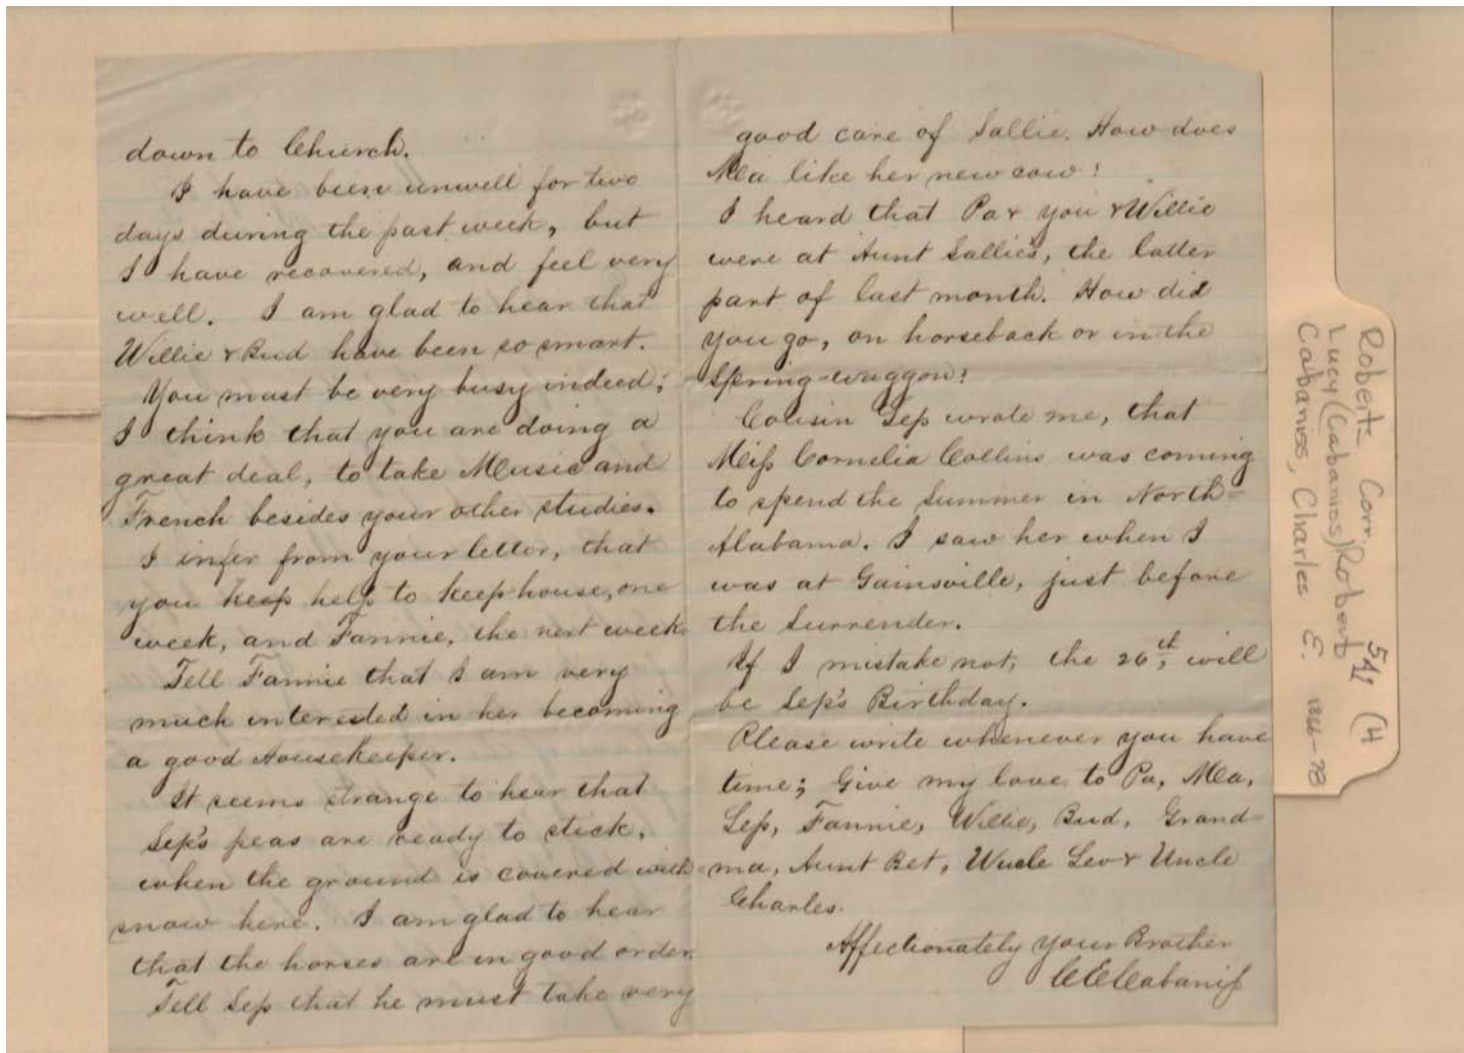 down to Church.
I have been unwell for two
days during the past week, but
I have recovered, and feel very
well. I am glad to hear that
Willie & Bud have been so smart.
You must be very busy indeed;
I think that you are doing a
great deal, to take Music and
French besides your other studies.
I infer from your letter, that
you keep help to keep house, one
week, and Fannie, the next week.
Tell Fannie that I am very
much interested in her becoming
a good Housekeeper.
It seems strange to hear that
Sep's peas are ready to stick,
when the ground is covered with
snow here. I am glad to hear
that the horses are in good order.
Tell Sep that he must take very
good care of Sallie. How does
Ma like her new cow?
I heard that Pa & you & Willie
were at Aunt Sallie's, the latter
part of last month. How did
you go, on horseback or in the
Spring-waggon?
Cousin Sep wrote me, that
Miss Cornelia Collins was coming
to spend the Summer in North=
Alabama. I saw her when I
was at Gainsville, just before
the Surrender.
If I mistake not, the 26th, will
be Sep's Birthday.
Please write whenever you have
time; Give my love to Pa, Ma,
Sep, Fannie, Willie, Bud, Grand=
=ma, Aunt Bet, Uncle Sev & Uncle
Charles.
Affectionately your Brother
C E Cabaniss
Roberts Corr. 541 (4
Lucy (Cabaniss) Roberts
Cabaniss, Charles E. 1866-78